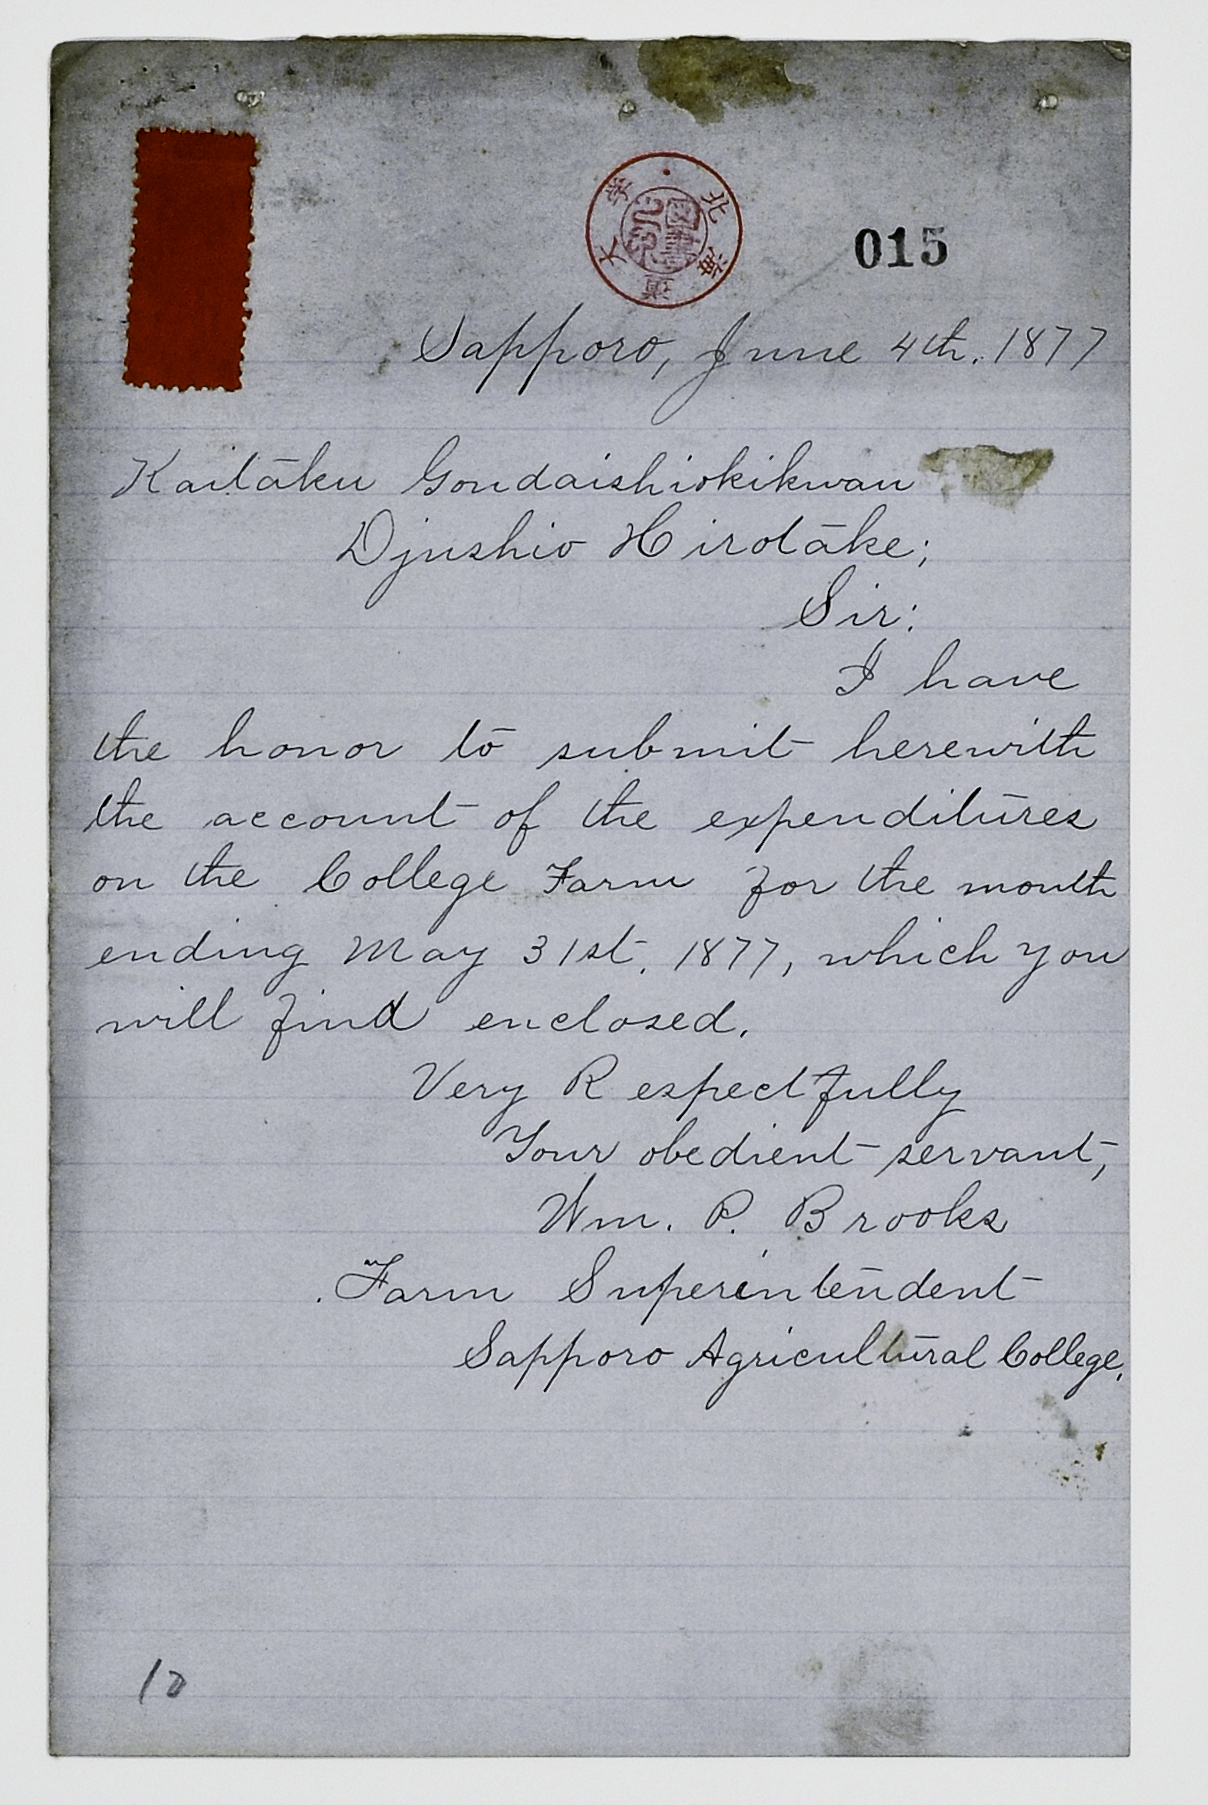 北海道大学
015
Sapporo, June 4th. 1877
Kaitaku Gondaishiokikwan
Djushio Hirotake;
Sir:
I have
the honor to submit herewith
the account of the expenditures
on the College Farm for the month
ending May 31st. 1877, which you
will find enclosed.
Very Respectfully
Your obedient servant,
Wm. P. Brooks
Farm Superintendent
Sapporo Agricultural College.
10